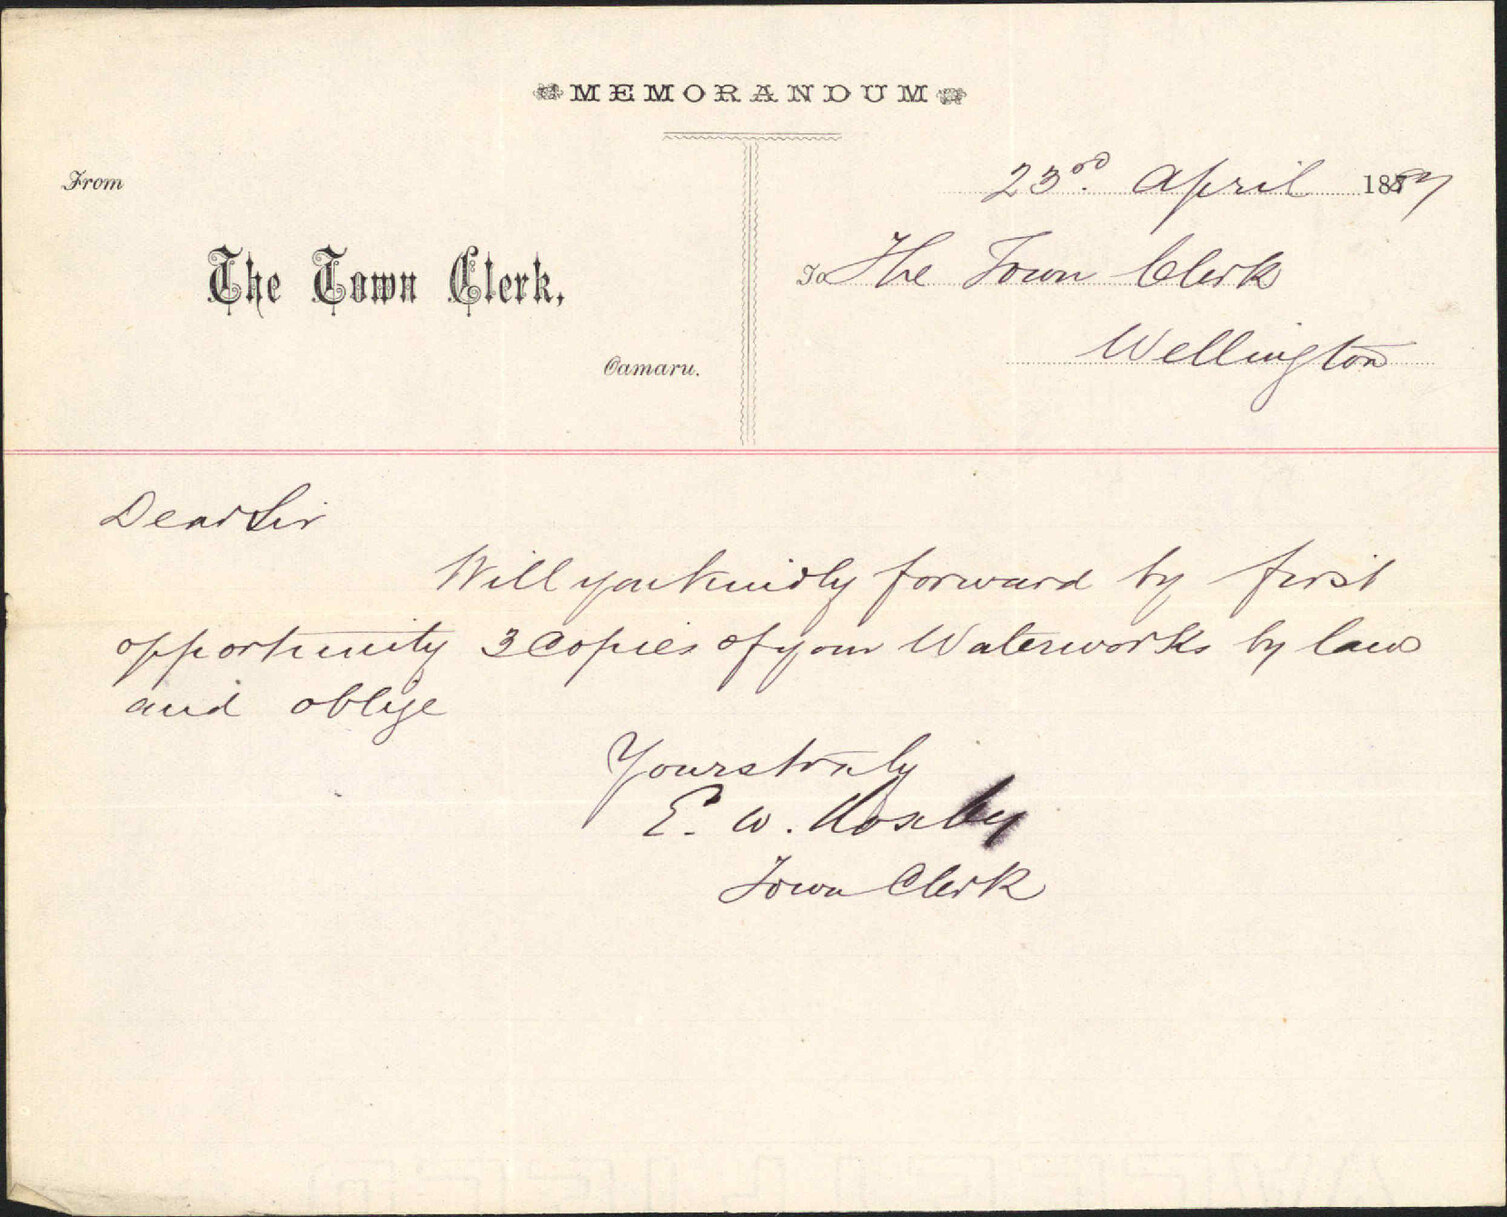 MEMORANDUM
From
23rd. April 188
The Town Clerk,
To The Town Clerk
Oamaru.
Wellington
Dear Sir
Will you kindly forward by first
opportunity 3 Copies of your Waterworks by laws
and oblige
Yours truly
E. W.
Town Clerk